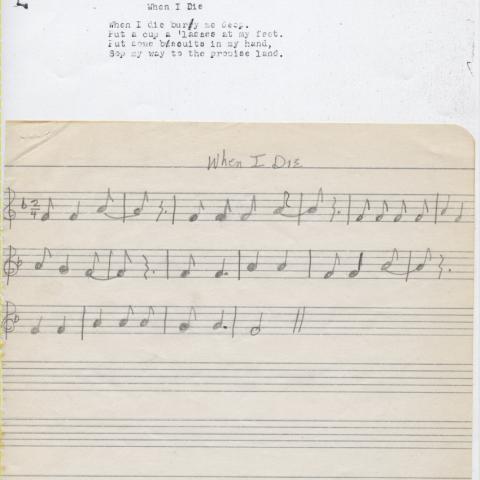 When I Die
When I die burry me deep.
Put a cup a 'lasses at my feet.
Put some biscuits in my hand,
Sop my way to the promise land.
When I Die
2
4